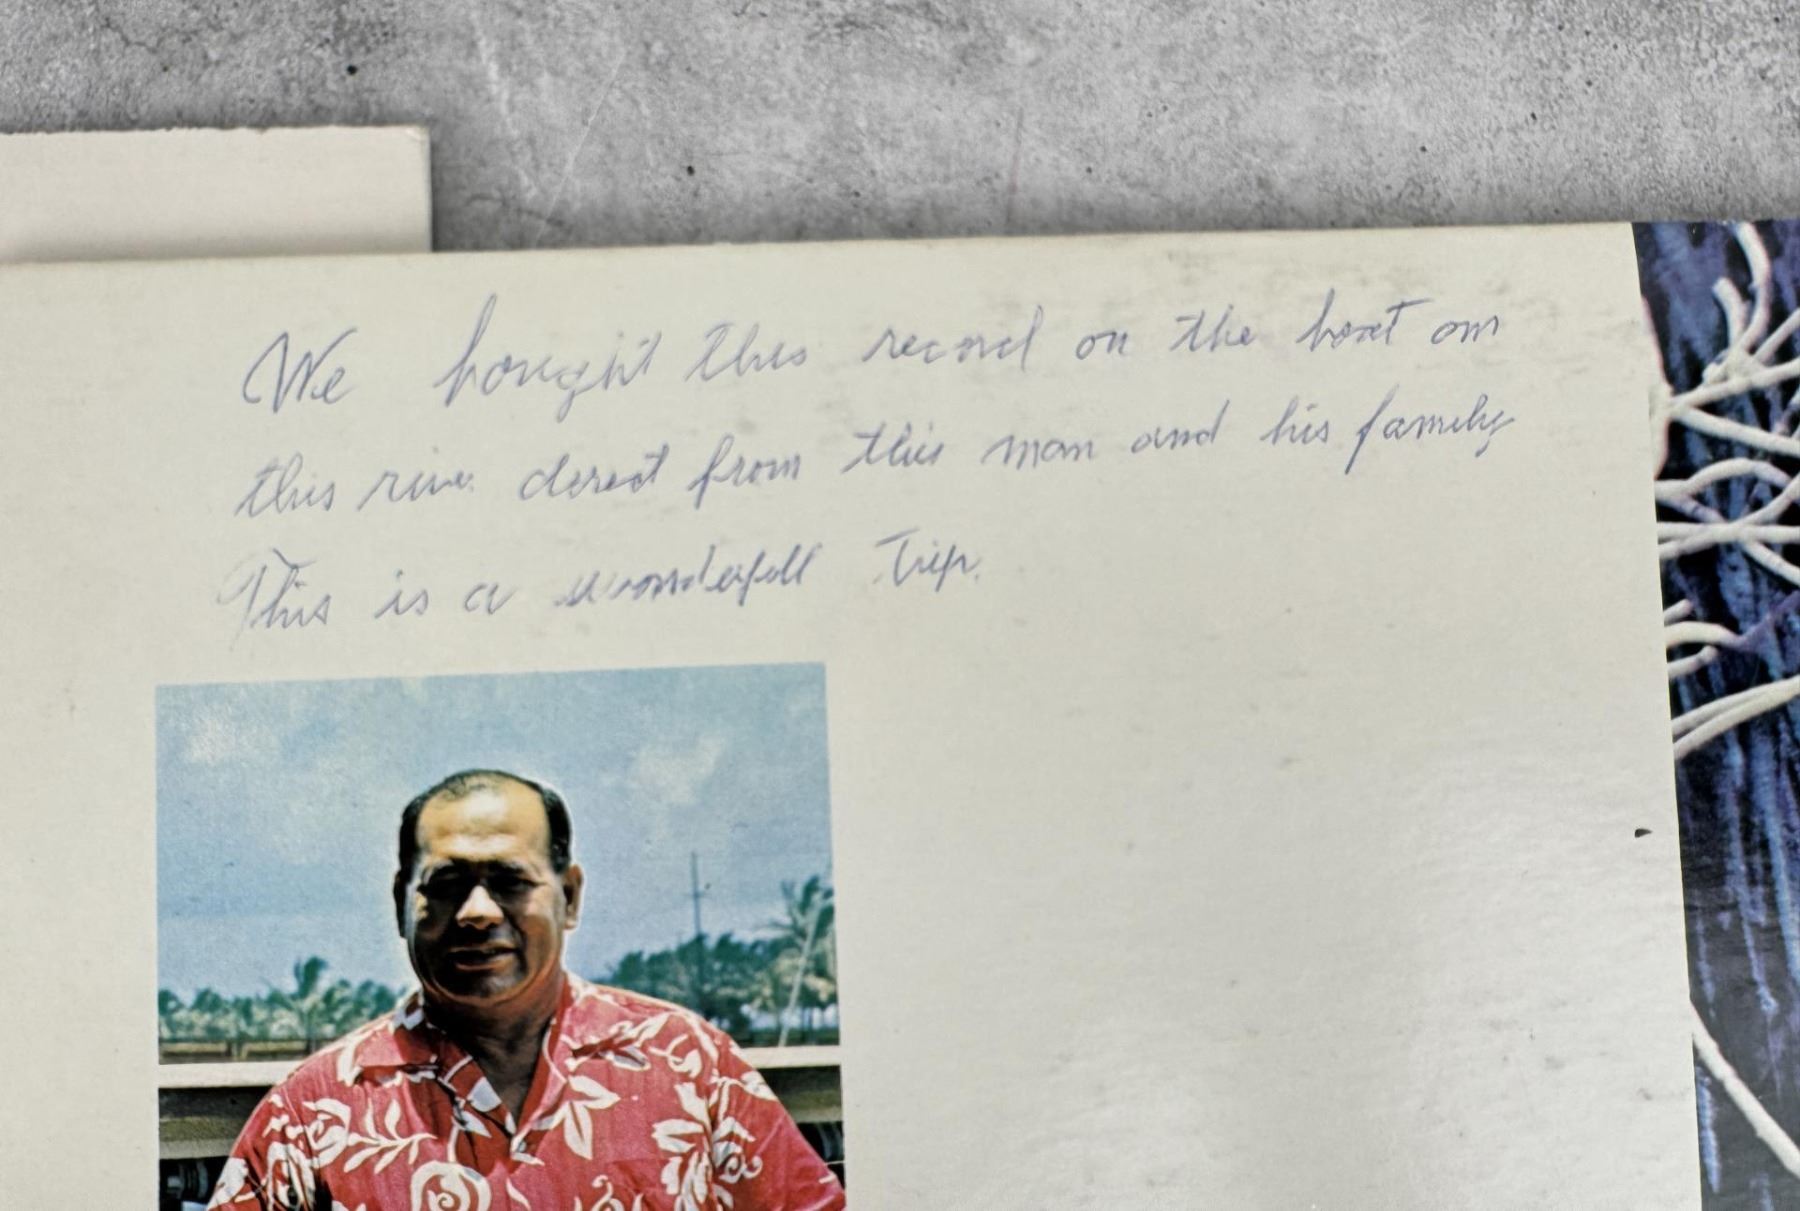 We bought this record on the boat on
this rive direct from this man and his family
This is a wonderfull Trip.